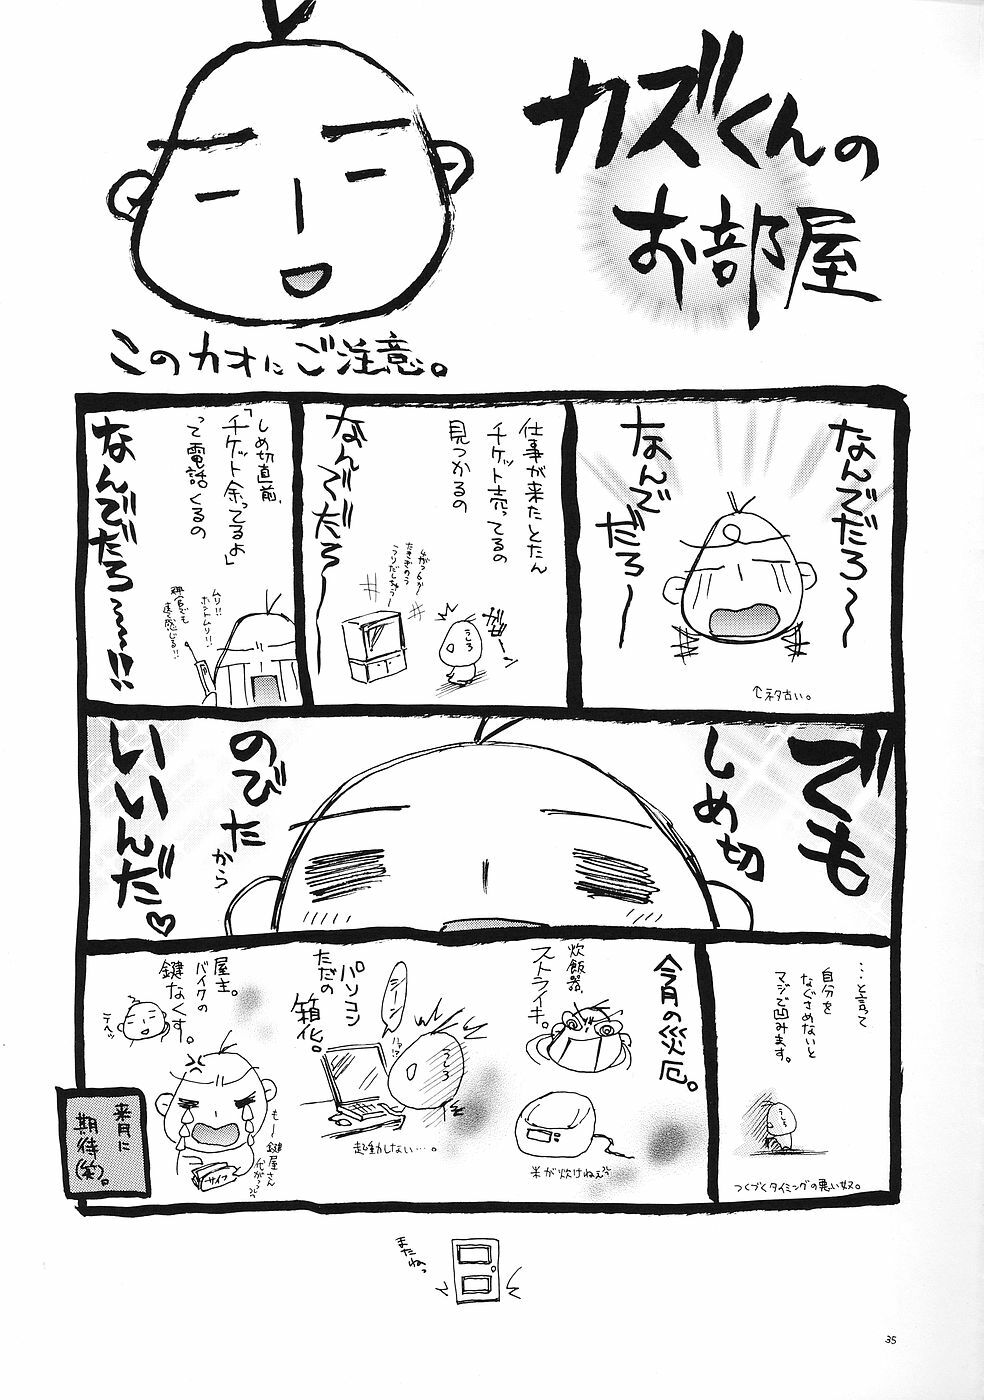 カズくんの
お部屋
このカオにご注意。
なんでだろ〜
なんで
だろ〜
↑ネタ古い。
仕事が来たとたん
チケット売ってるの
見つかるの
なんでだろ〜
うしろ
しめ切直前、
「チケット余ってるよ」
って電話くるの
なんでだろ〜〜!!
ムリ!!
ホントムリ!!
でも
しめ切
のびた
から
いいんだ♡
…と言って
自分を
なぐさめないと
マジで凹みます。
うしろ
つくづくタイミングの悪い奴。
今月の災厄。
炊飯器、
ストライキ。
米が炊けねぇ
パソコン
ただの
箱化。
シーン
うしろ
起動しない…。
屋主。
バイクの
鍵なくす。
も〜
鍵屋さん
サイフ
来月に
期待(笑)。
またねっ
35